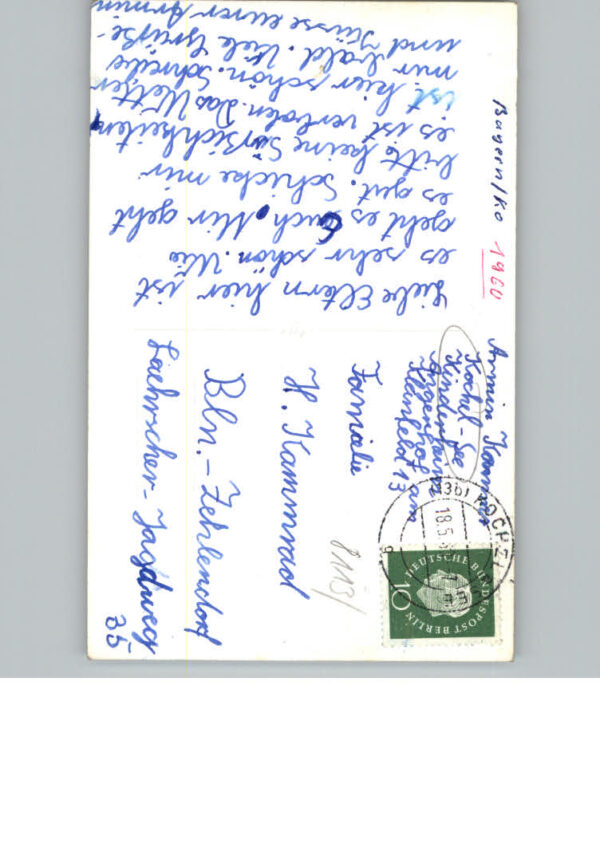 Bayern/Ko 1960
Liebe Eltern hier ist
es sehr schön. Wie
geht es Euch. Mir geht
es gut. Schicke mir
bitte keine Süßichkeiten
es ist verboten. Das Wetter
ist hier schön. Schreibe
mir bald. Viele Grüße
und Küsse eurer Armin
Armin
Kochl-See
Kinderheim
am
Kleinfeld 13
Familie
H. Kammrad
Bln.-Zehlendorf
Laehrscher-Jagdweg
35
8113/
(13b) KOCHEL
18.5.
DEUTSCHE BUNDESPOST BERLIN
10